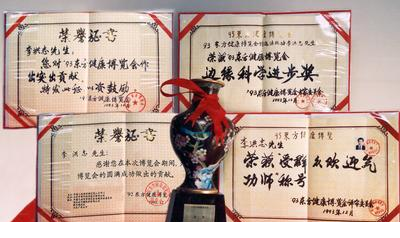 荣誉证书
李洪志先生：
您对'93东方健康博览会作
出突出贡献，
特发此证，以资鼓励。
'93东方健康博览会
1993年12月
93东方健康博览
荣获93东方健康博览会
边缘科学进步奖
1993年12月
荣誉证书
李洪志先生：
感谢您在本次博览会期间，
博览会的圆满成功做出的贡献。
93东方健康博览会
93东方健康博览
李洪志先生：
荣获受群众欢迎气
功师"称号
93东方健康博览会
1993年12月